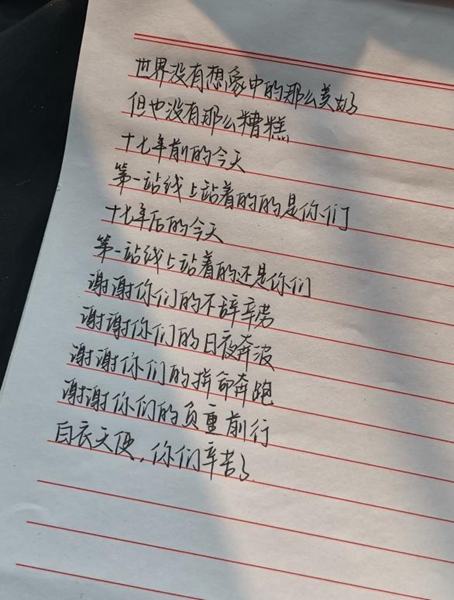 世界没有想象中的那么美好
但也没有那么糟糕
十七年前的今天
第一站线上站着的的是你们
十七年后的今天
第一站线上站着的还是你们
谢谢你们的不辞辛劳
谢谢你们的日夜奔波
谢谢你们的拼命奔跑
谢谢你们的负重前行
白衣天使，你们辛苦了